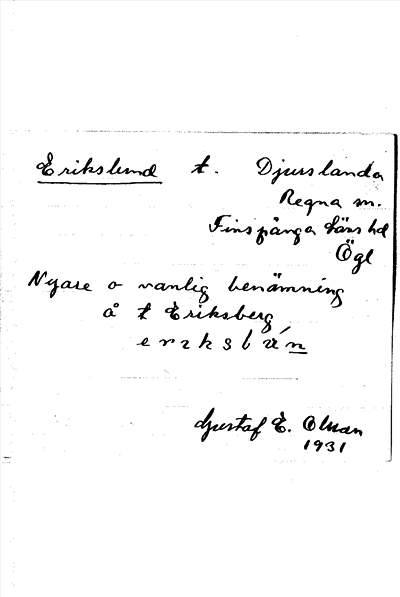 Erikslund t. Djurslanda
Regna sn.
Finspånga läns hd
Ögl
Nyare o vanlig benämning
å t Eriksberg
Gustaf E. Olman
1931